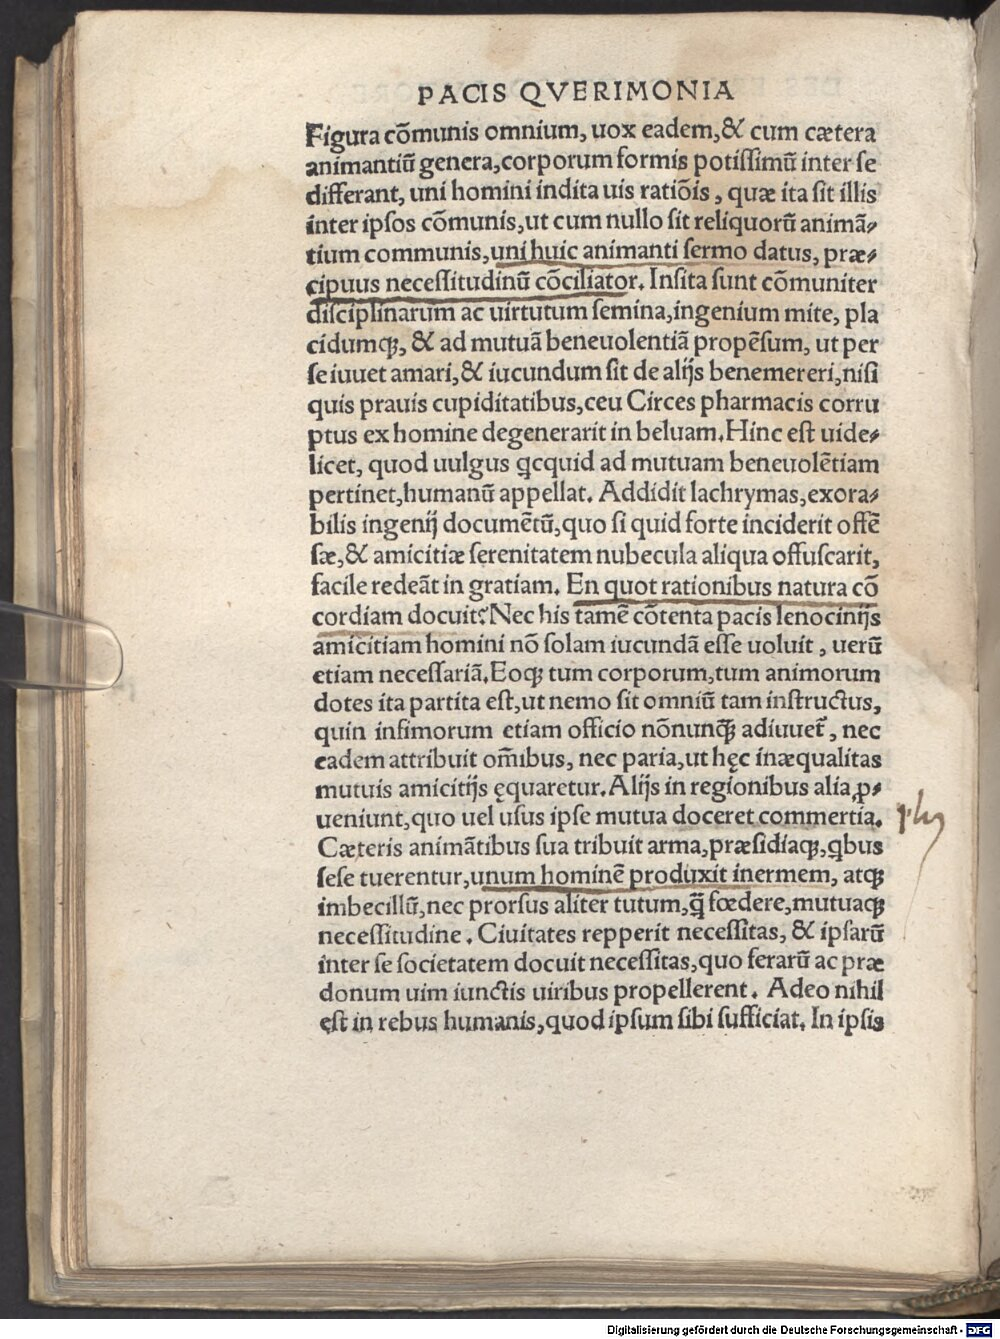 PACIS QVERIMONIA
Figura cōmunis omnium, uox eadem, & cum cætera
animantiū genera, corporum formis potissimū inter se
differant, uni homini indita uis ratiōis, quæ ita sit illis
inter ipsos cōmunis, ut cum nullo sit reliquorū animā⸗
tium communis, uni huic animanti sermo datus, præ⸗
cipuus necessitudinū cōciliator. Insita sunt cōmuniter
disciplinarum ac uirtutum semina, ingenium mite, pla
cidumq́;, & ad mutuā beneuolentiā propēsum, ut per
se iuuet amari, & iucundum sit de alijs benemereri, nisi
quis prauis cupiditatibus, ceu Circes pharmacis corru
ptus ex homine degenerarit in beluam. Hinc est uide⸗
licet, quod uulgus qcquid ad mutuam beneuolētiam
pertinet, humanū appellat. Addidit lachrymas, exora⸗
bilis ingenij documētū, quo si quid forte inciderit offē
sæ, & amicitiæ serenitatem nubecula aliqua offuscarit,
facile redeāt in gratiam. En quot rationibus natura cō
cordiam docuit? Nec his tamē cōtenta pacis lenocinijs
amicitiam homini nō solam iucundā esse uoluit, uerū
etiam necessariā. Eoq; tum corporum, tum animorum
dotes ita partita est, ut nemo sit omniū tam instructus,
quin infimorum etiam officio nōnunq̄; adiuuet̄, nec
eadem attribuit om̄ibus, nec paria, ut hęc inæqualitas
mutuis amicitijs ęquaretur. Alijs in regionibus alia ꝓ⸗
ueniunt, quo uel usus ipse mutua doceret commertia.
Cæteris animātibus sua tribuit arma, præsidiaq;, qbus
sese tuerentur, unum hominē produxit inermem, atq;
imbecillū, nec prorsus aliter tutum, q̄ fœdere, mutuaq;
necessitudine. Ciuitates repperit necessitas, & ipsarū
inter se societatem docuit necessitas, quo ferarū ac præ
donum uim iunctis uiribus propellerent. Adeo nihil
est in rebus humanis, quod ipsum sibi sufficiat. In ipsis
Digitalisierung gefördert durch die Deutsche Forschungsgemeinschaft - DFG